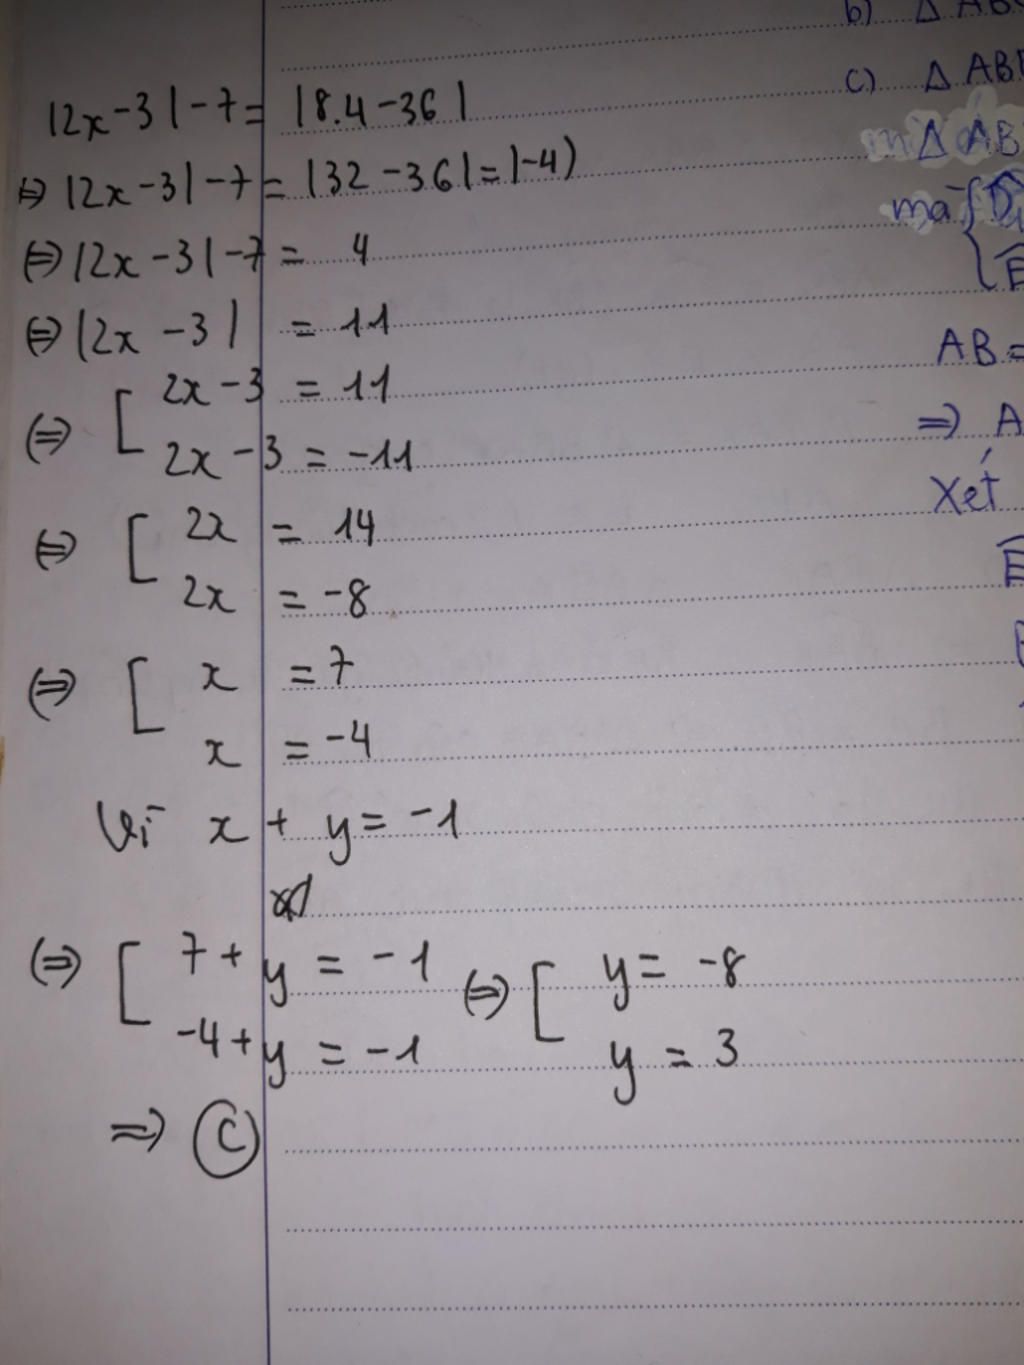 |2x-3|-7= |8.4-36|
⇔ |2x-3|-7 = |32-36|=|-4)
⇔ |2x-3|-7 = 4
⇔ |2x-3| = 11
⇔ [ 2x-3 = 11
2x-3 = -11
⇔ [ 2x = 14
2x = -8
⇔ [ x = 7
x = -4
Vì x + y = -1
⇔ [ 7 + y = -1 ⇔ [ y = -8
-4 + y = -1 y = 3
⇒ C
b) Δ AB
c) Δ AB
Δ AB
mà {
AB =
⇒ A
Xét